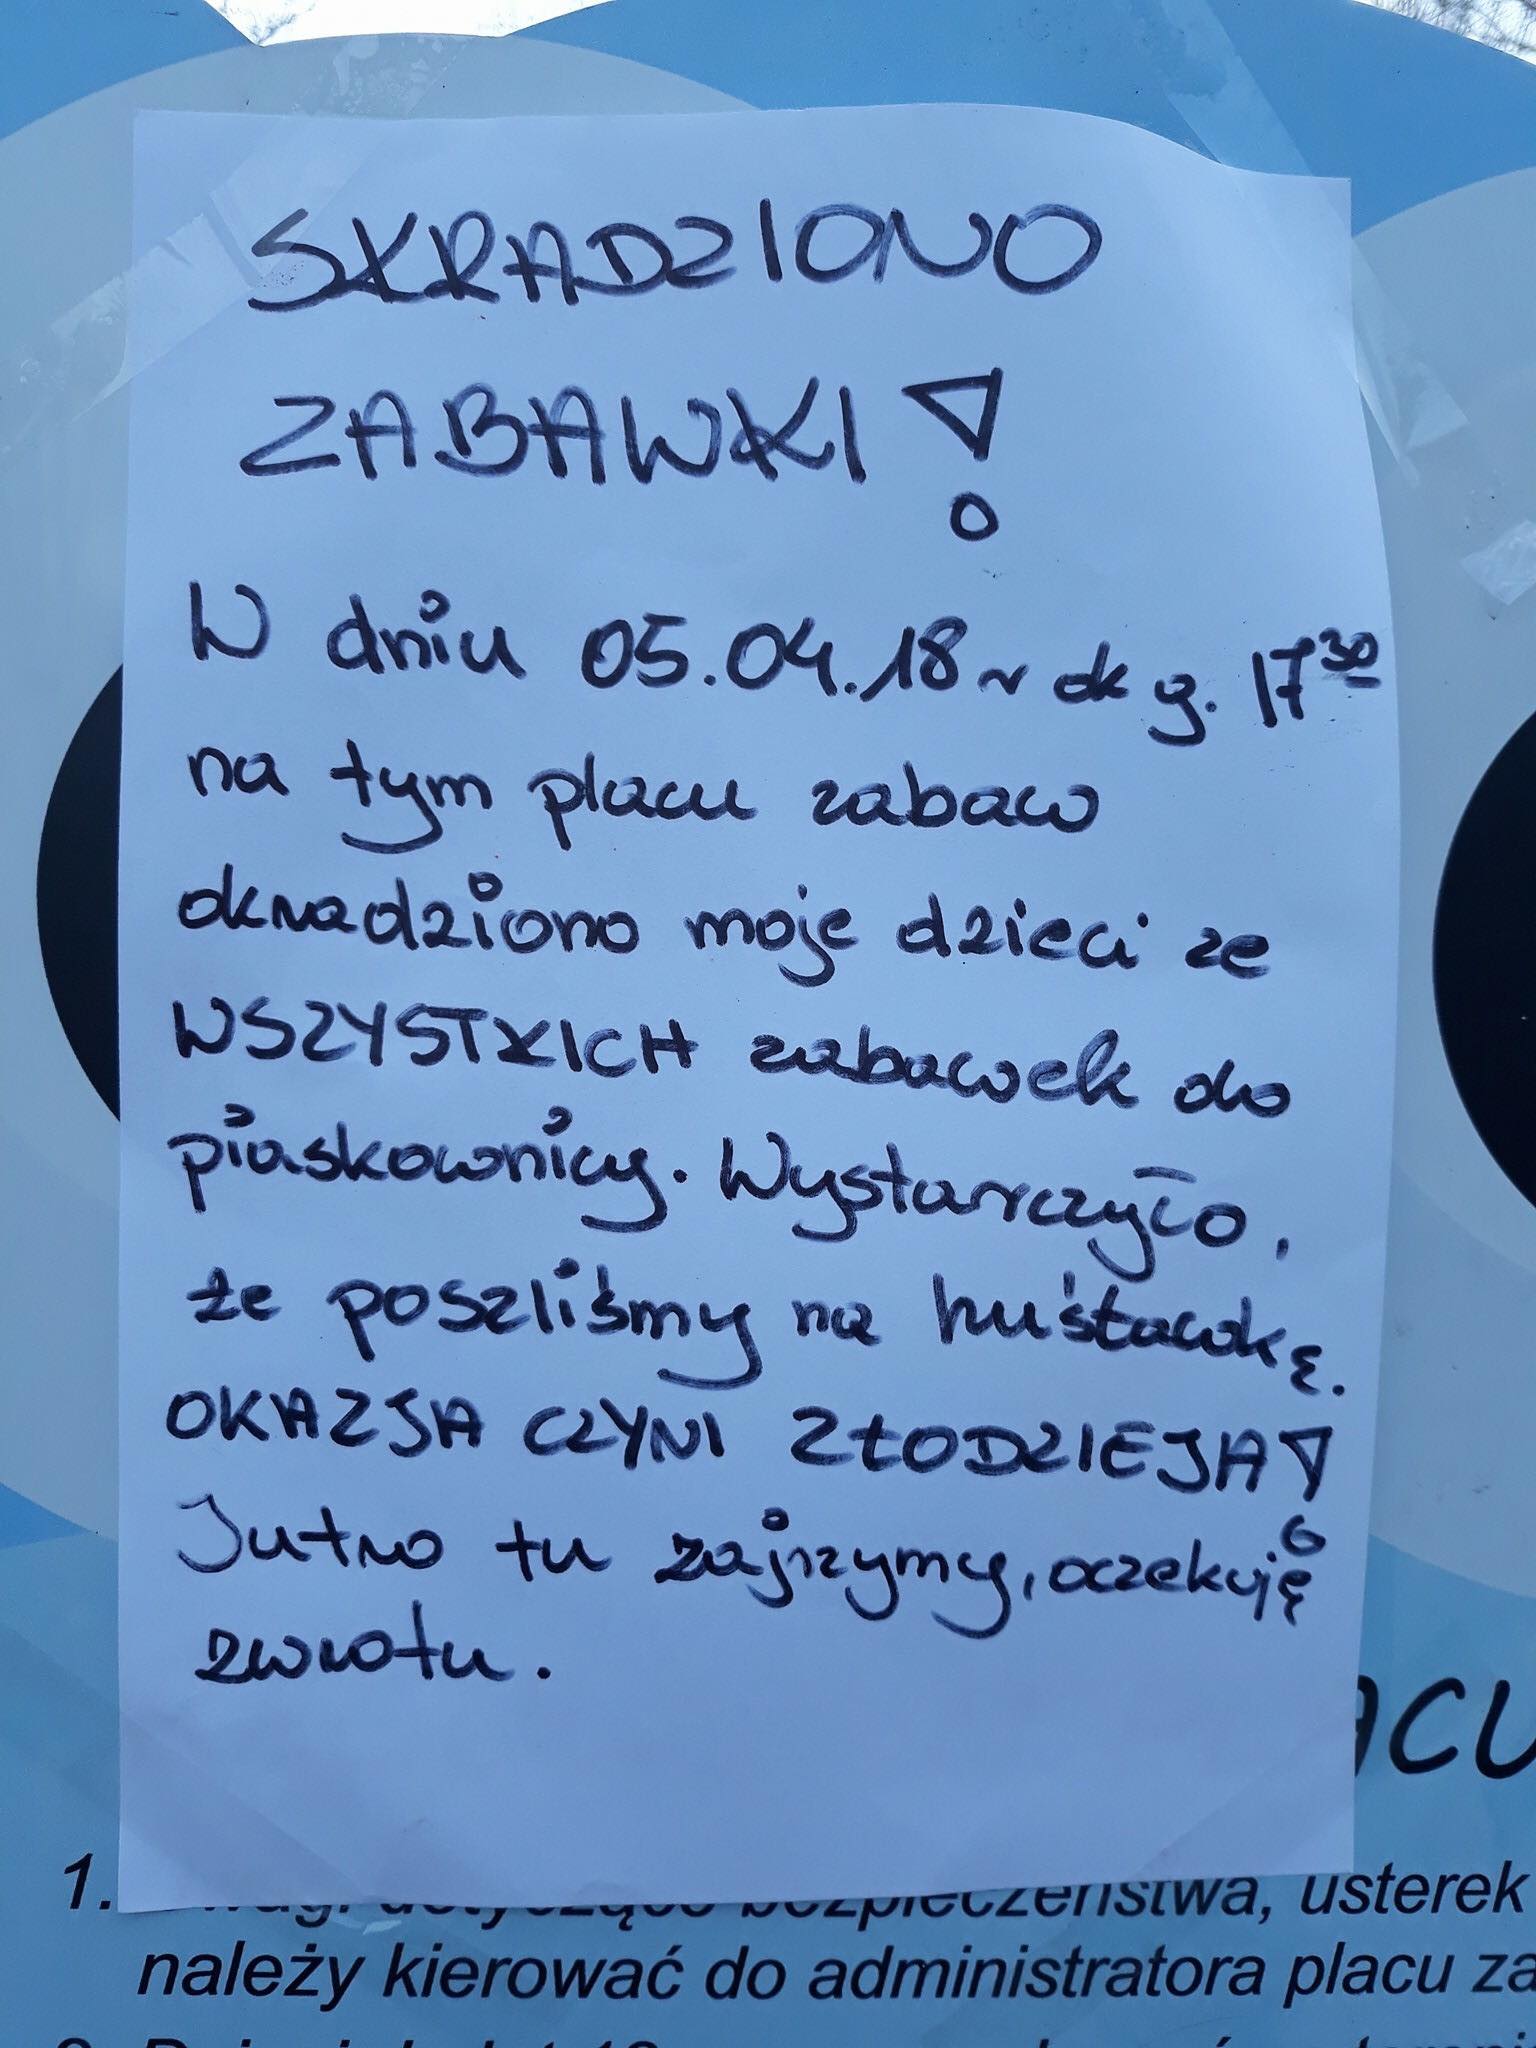 SKRADZIONO
ZABAWKI!
W dniu 05.04.18r ok g. 17³⁰
na tym placu zabaw
okradziono moje dzieci ze
WSZYSTKICH zabawek do
piaskownicy. Wystarczyło,
że poszliśmy na huśtawkę.
OKAZJA CZYNI ZŁODZIEJA!
Jutro tu zajrzymy, oczekuję
zwrotu.
ACU
1. Uwagi dotyczące bezpieczeństwa, usterek
należy kierować do administratora placu za